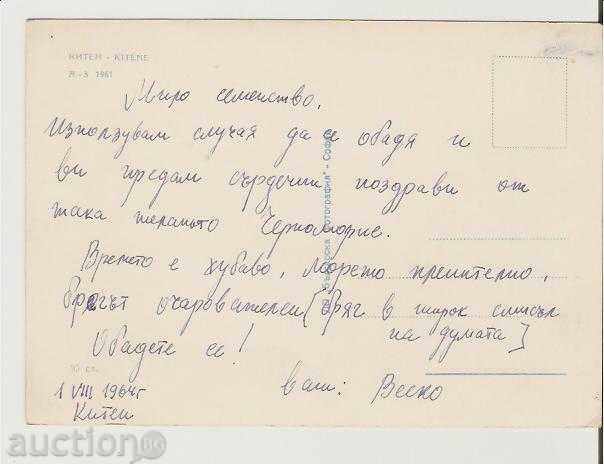 КИТЕН - KITÈNE
Я - 5 1961
Мило семейство,
Използувам случая да се обадя и
ви предам сърдечни поздрави от
така желаното Черноморие.
Времето е хубаво, морето пленително,
брегът очарователен [бряг в широк смисъл
на думата]
Обадете се!
ваш: Веско
1 VIII 1964 г
Китен
30 ст.
"Българска фотография" - София
auction.BG